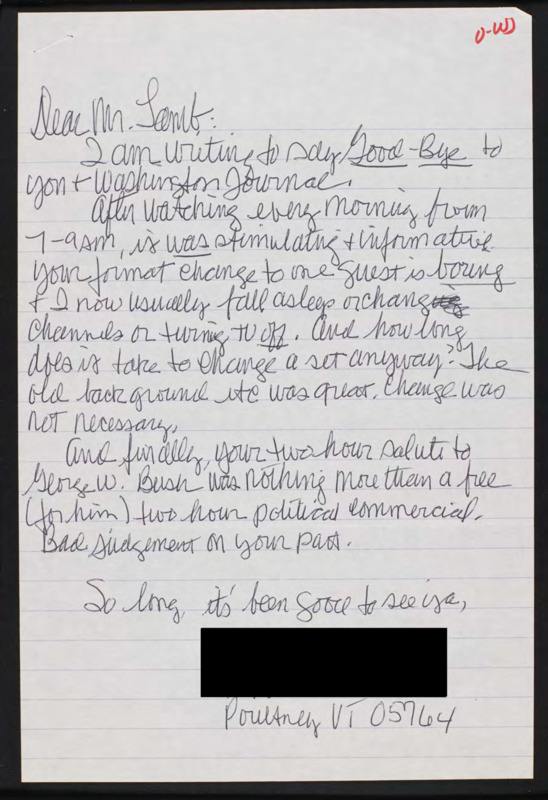 U-WJ
Dear Mr. Lamb:
I am writing to say Good-Bye to
you + Washington Journal.
After watching every morning from
7-9am, it was stimulating + informative.
Your format change to one guest is boring
+ I now usually fall asleep or change
channels or turning tv off. And how long
does it take to change a set anyway? The
old background etc was great. Change was
not necessary.
And finally, your two hour salute to
George W. Bush was nothing more than a free
(for him) two hour political commercial.
Bad judgement on your part.
So long, it's been good to see ya,
Poultney VT 05764